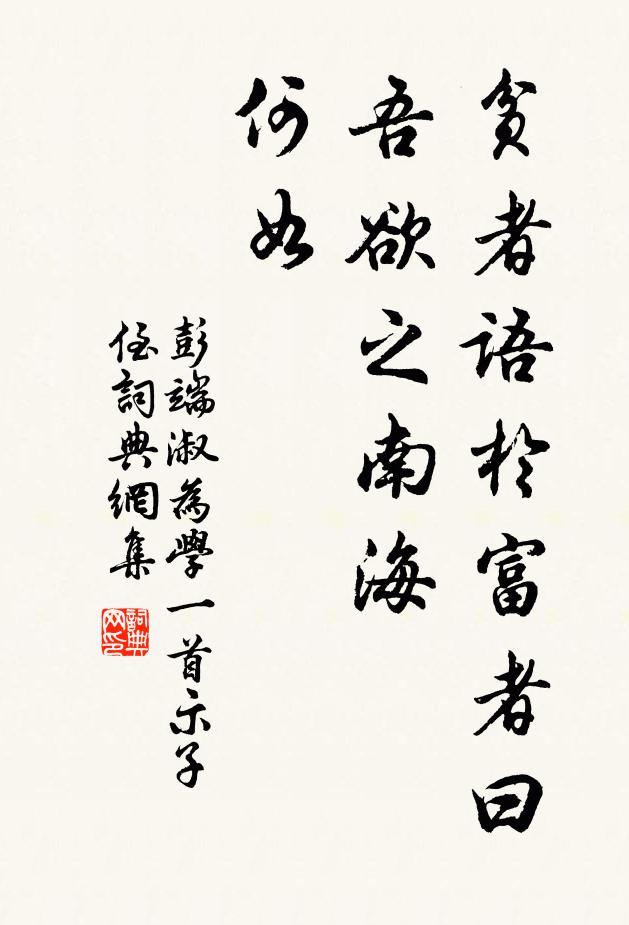 貧者語於富者曰
吾欲之南海
何如
彭端淑為學一首示子
侄詞典網集
詞典网印